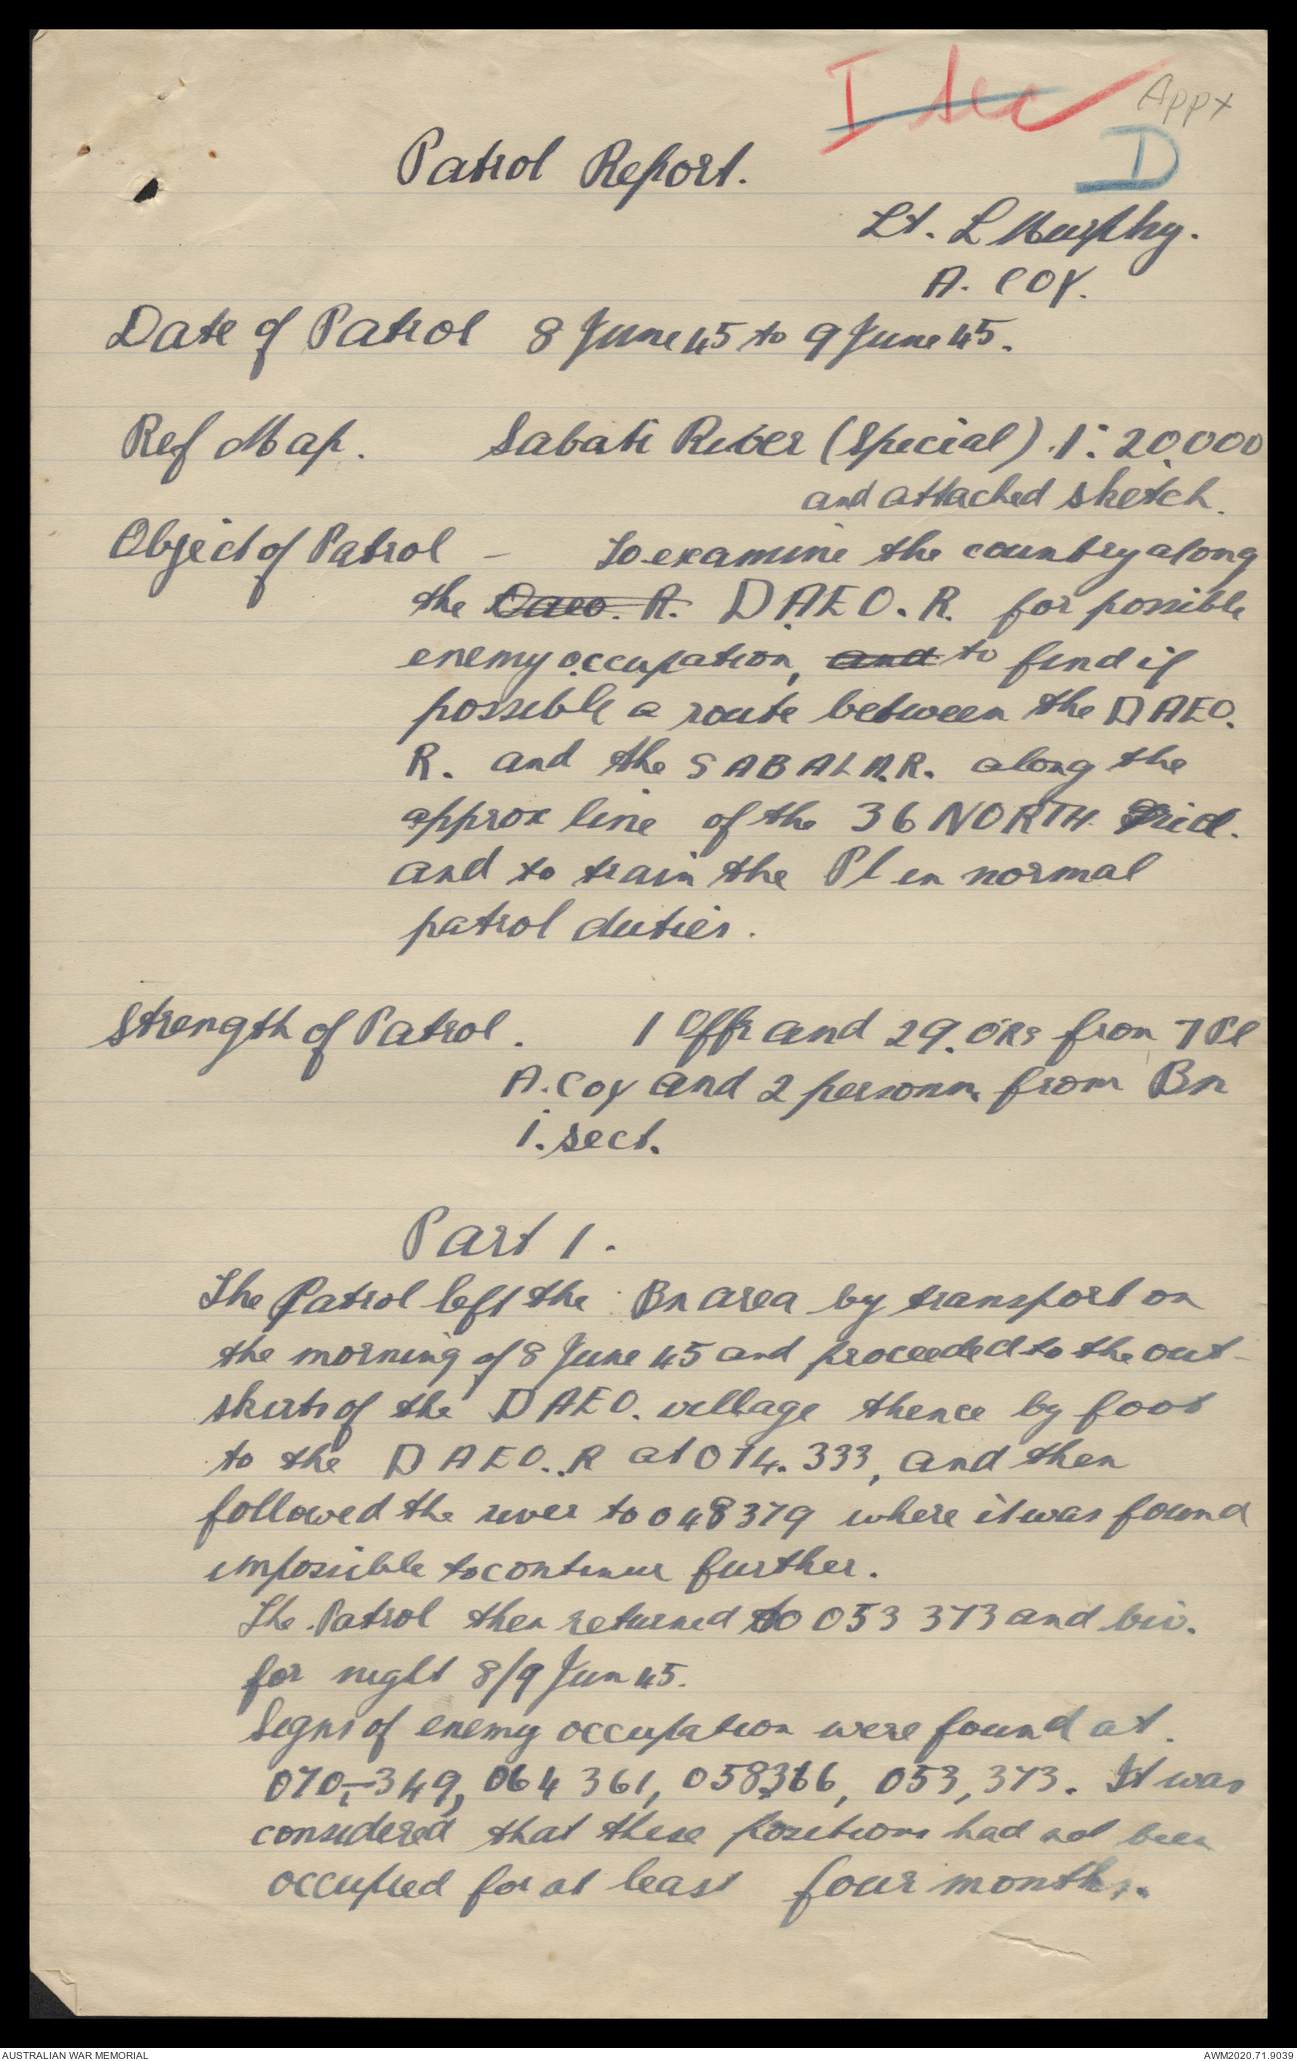 I sec
Appx
D
Patrol Report.
Lt. L Murphy.
A. COY.
Date of Patrol 8 June 45 to 9 June 45.
Ref Map. Sabati River (Special) 1:20,000
and attached sketch.
Object of Patrol - To examine the country along
the Daeo. R. DAEO. R. for possible
enemy occupation, and to find if
possible a route between the DAEO.
R. and the SABALA.R. along the
approx line of the 36 NORTH Grid.
and to train the Pl in normal
patrol duties.
Strength of Patrol. 1 Offr and 29. ORs from 7 Pl
A. Coy and 2 personn. from Bn
i. sect.
Part 1.
The Patrol left the Bn area by transport on
the morning of 8 June 45 and proceeded to the out-
skirts of the DAEO. village thence by foot
to the DAEO..R at 074.333, and then
followed the river to 048379 where it was found
impossible to continue further.
The Patrol then returned to 053 373 and biv.
for night 8/9 Jun 45.
Signs of enemy occupation were found at.
070,-349, 064 361, 058366, 053,373. It was
considered that these positions had not been
occupied for at least four months.
AUSTRALIAN WAR MEMORIAL
AWM2020.71.9039